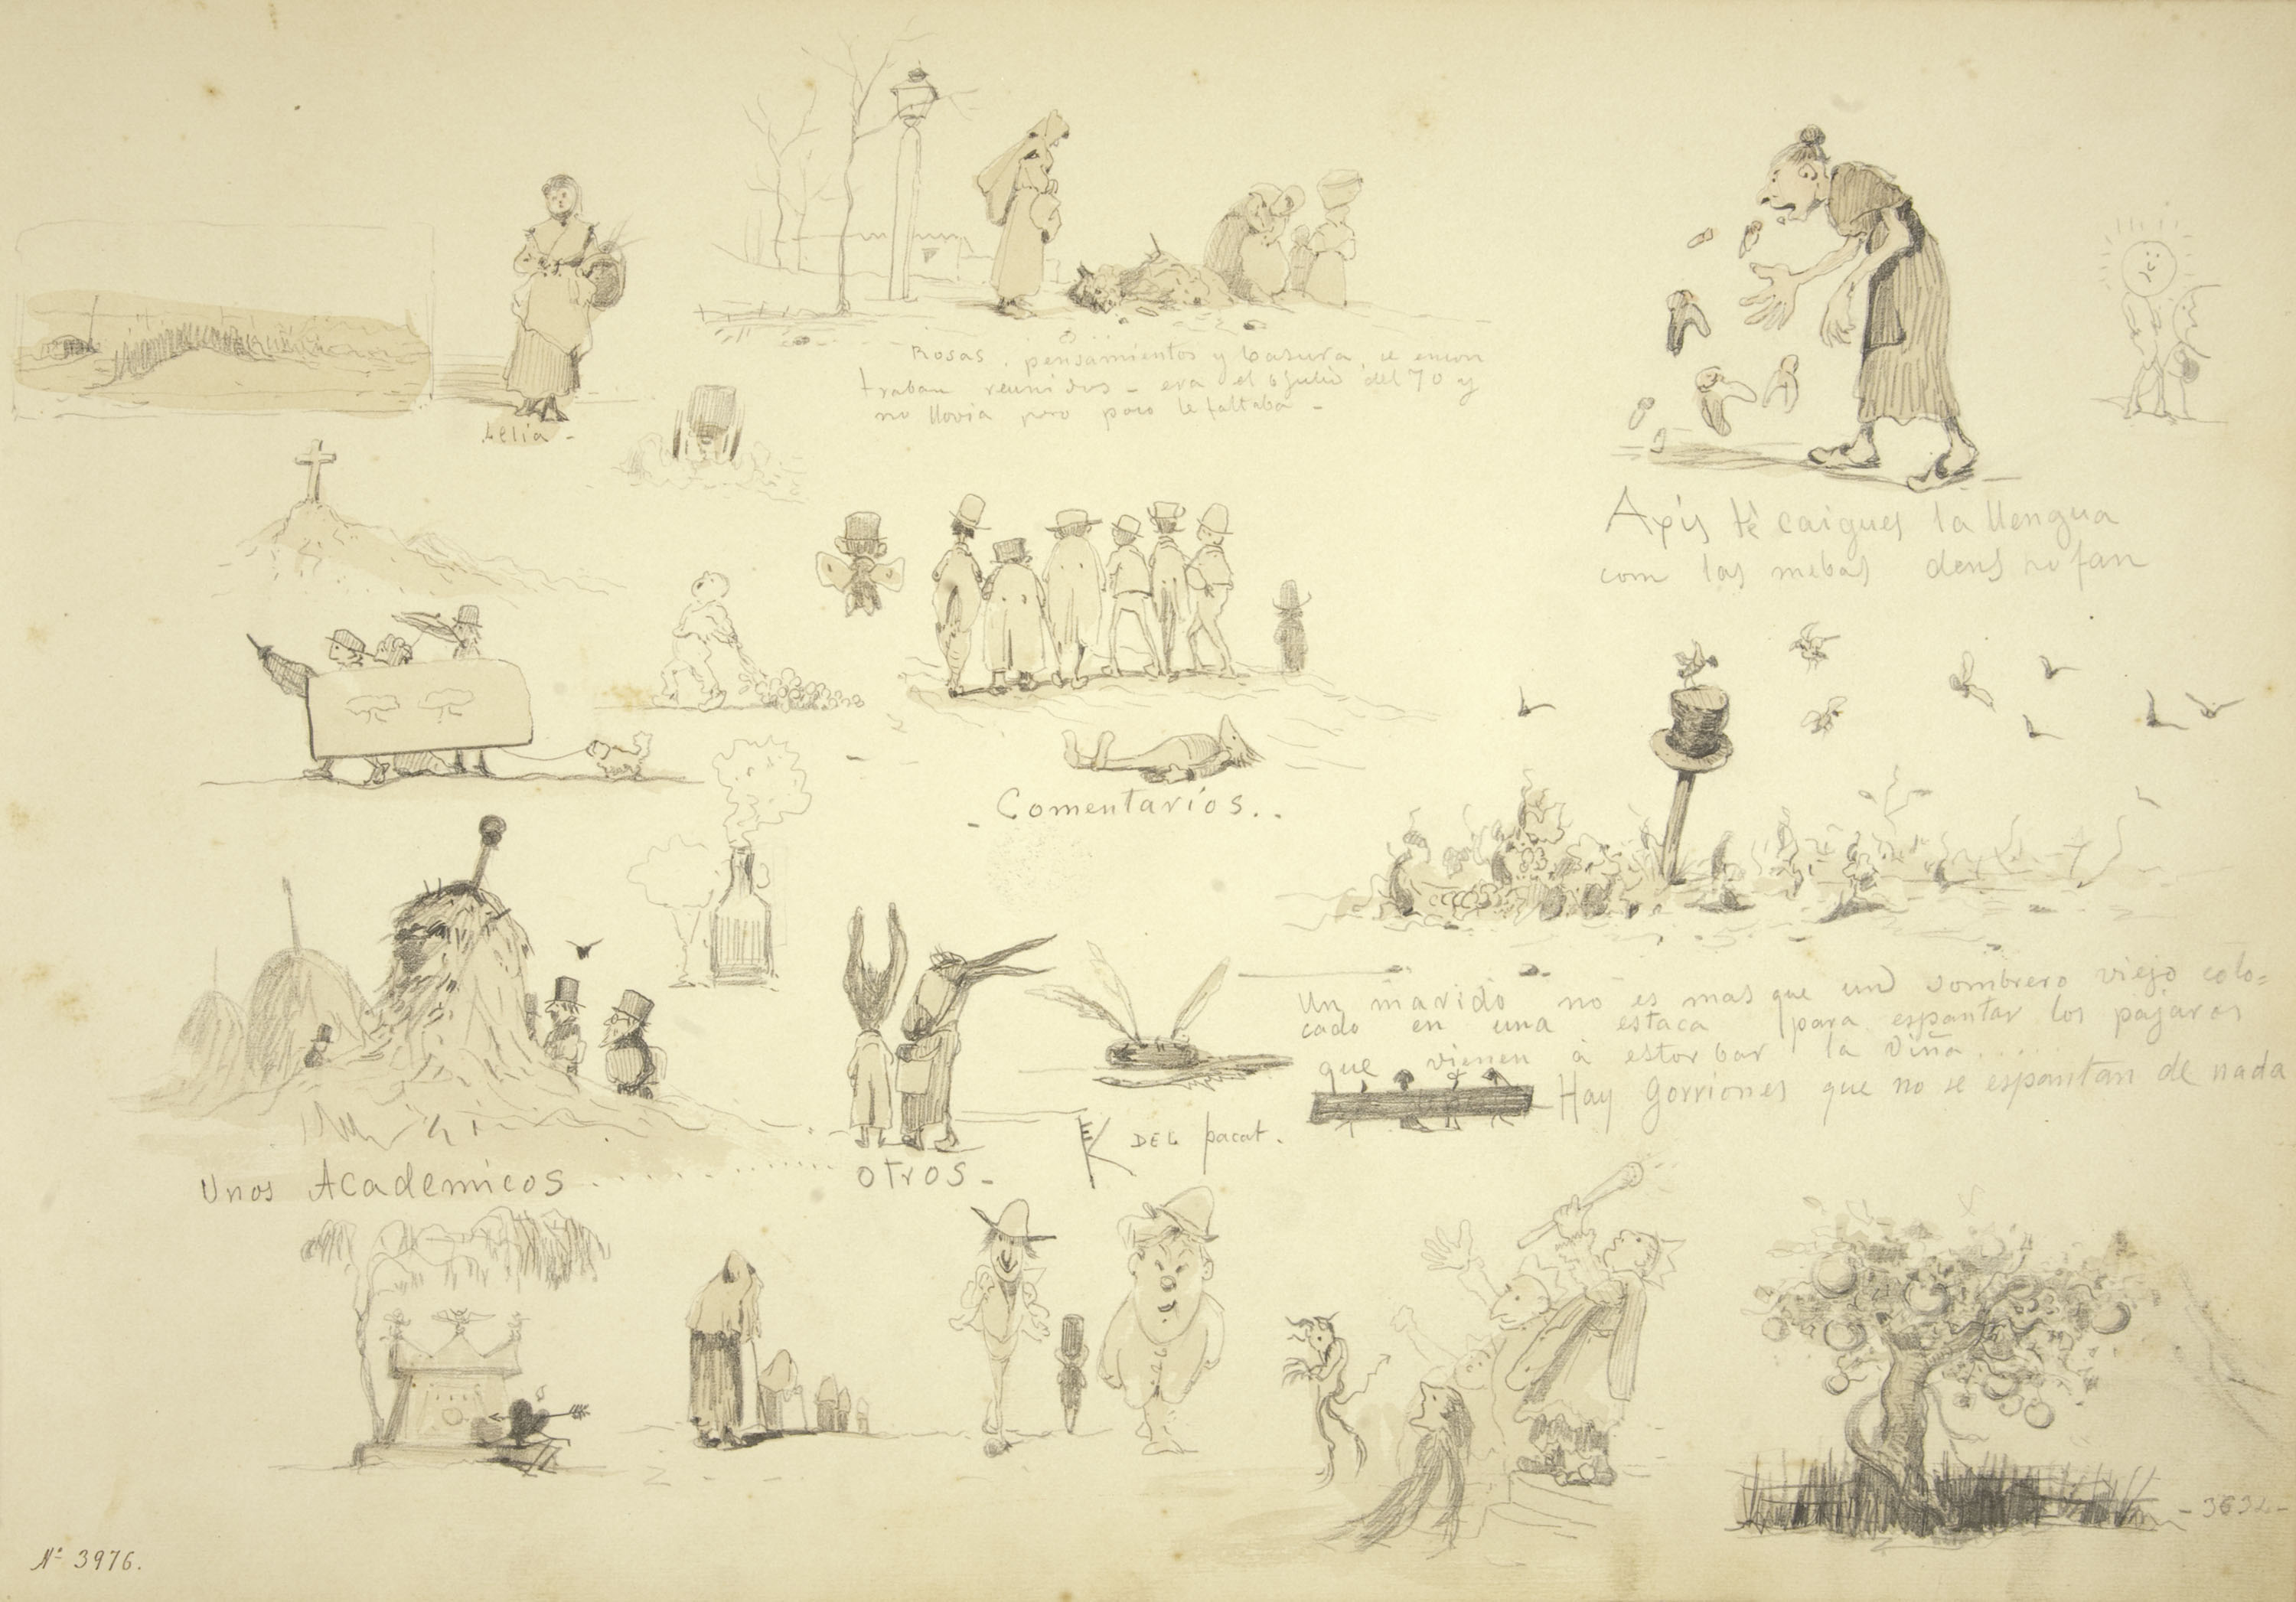 Lelia -
Rosas, pensamientos y basura, se encon
traban reunidos - era el 6 Julio del 70 y
no llovia pero poco le faltaba -
Axis te caigues la llengua
com las mebas dens
- Comentarios..
Un marido no es mas que un sombrero viejo colo=
cado en una estaca para espantar los pájaros
que vienen á estorbar la viña.....
Hay Gorriones que no se espantan de nada
DEL pacat.
Unos Academicos ............ otros -
- 3632 -
Nº 3976.